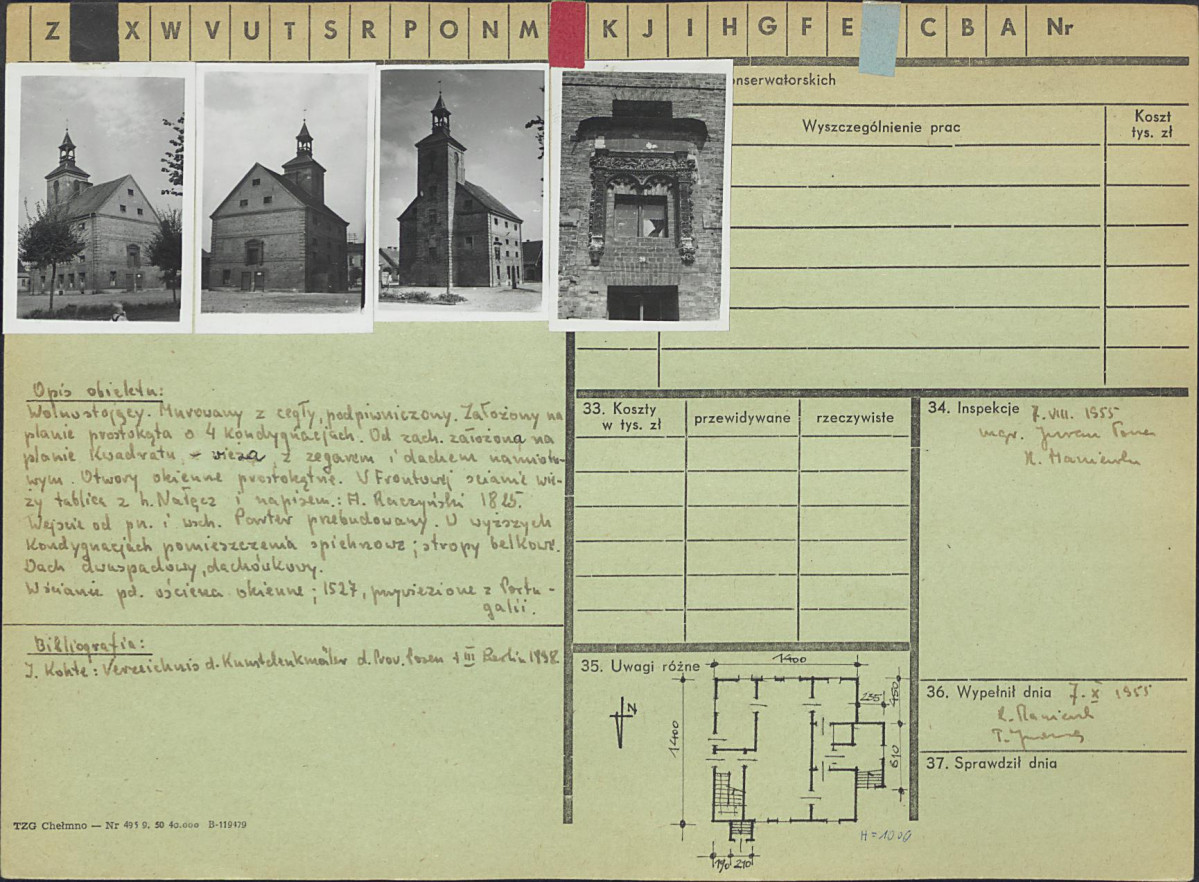 Z X W V U T S R P O N M K J I H G F E C B A Nr
onserwatorskich
Wyszczególnienie prac
Koszt
tys. zł
Opis obiektu:
Wolnostojący. Murowany z cegły, podpiwniczony. Założony na
planie prostokąta o 4 kondygnacjach. Od zach. założona na
planie kwadratu, – wieża, z zegarem i dachem namioto-
wym. Otwory okienne prostokątne. W frontowej ścianie wie-
ży tablica z h. Nałęcz i napisem: A. Raczyński 1825.
Wejście od pn. i wsch. Parter przebudowany. W wyższych
kondygnacjach pomieszczenia spichrzowe; stropy belkowe.
Dach dwuspadowy, dachówkowy.
W ścianie pd. ościena okienne; 1527, przywiezione z Portu-
galii.
Bibliografia:
J. Kohte: Verzeichnis d. Kunstdenkmäler d. Prov. Posen t III Berlin 1898
TZG Chełmno — Nr 495 9. 50 40.000 B-119479
33. Koszty
w tys. zł
przewidywane
rzeczywiste
34. Inspekcje 7. VIII. 1955
mgr.
35. Uwagi różne
1400
N
1400
255
450
610
190 210
H = 1000
36. Wypełnił dnia 7. X 1955
37. Sprawdził dnia